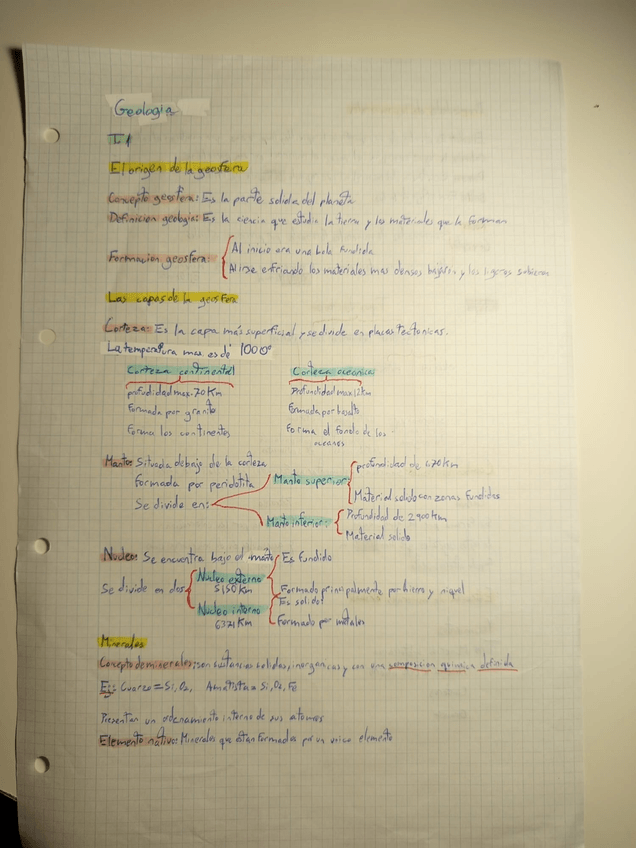 Geologia
T.1
El origen de la geosfera
Concepto geosfera: Es la parte solida del planeta
Definicion geologia: Es la ciencia que estudia la tierra y los materiales que la forman
Formacion geosfera:
Al inicio era una bola fundida
Al irse enfriando los materiales mas densos bajaron y los ligeros subieron
Las capas de la geosfera
Corteza: Es la capa más superficial y se divide en placas tectonicas.
La temperatura max es de 1000º
Corteza continental
profudidad max. 70 Km
Formada por granito
Forma los continentes
Corteza oceanica
Profundidad max 12 km
Formada por basalto
Forma el fondo de los
oceanos
Manto: Situada debajo de la corteza
formada por peridotita
Se divide en:
Manto superior:
profundidad de 670 km
Material solido con zonas fundidas
Manto inferior:
Profundidad de 2900 km
Material solido
Nucleo: Se encuentra bajo el manto
Se divide en dos
Nucleo externo
5150 Km
Es fundido
Formado principalmente por hierro y niquel
Nucleo interno
6371 Km
Es solido
Formado por metales
Minerales
Concepto de minerales: son sustancias solidas, inorganicas y con una composicion quimica definida
Ej: Cuarzo = Si, O2, Amatista = Si, O2, Fe
Presentan un ordenamiento interno de sus atomos
Elemento nativo: Minerales que estan formados por un unico elemento